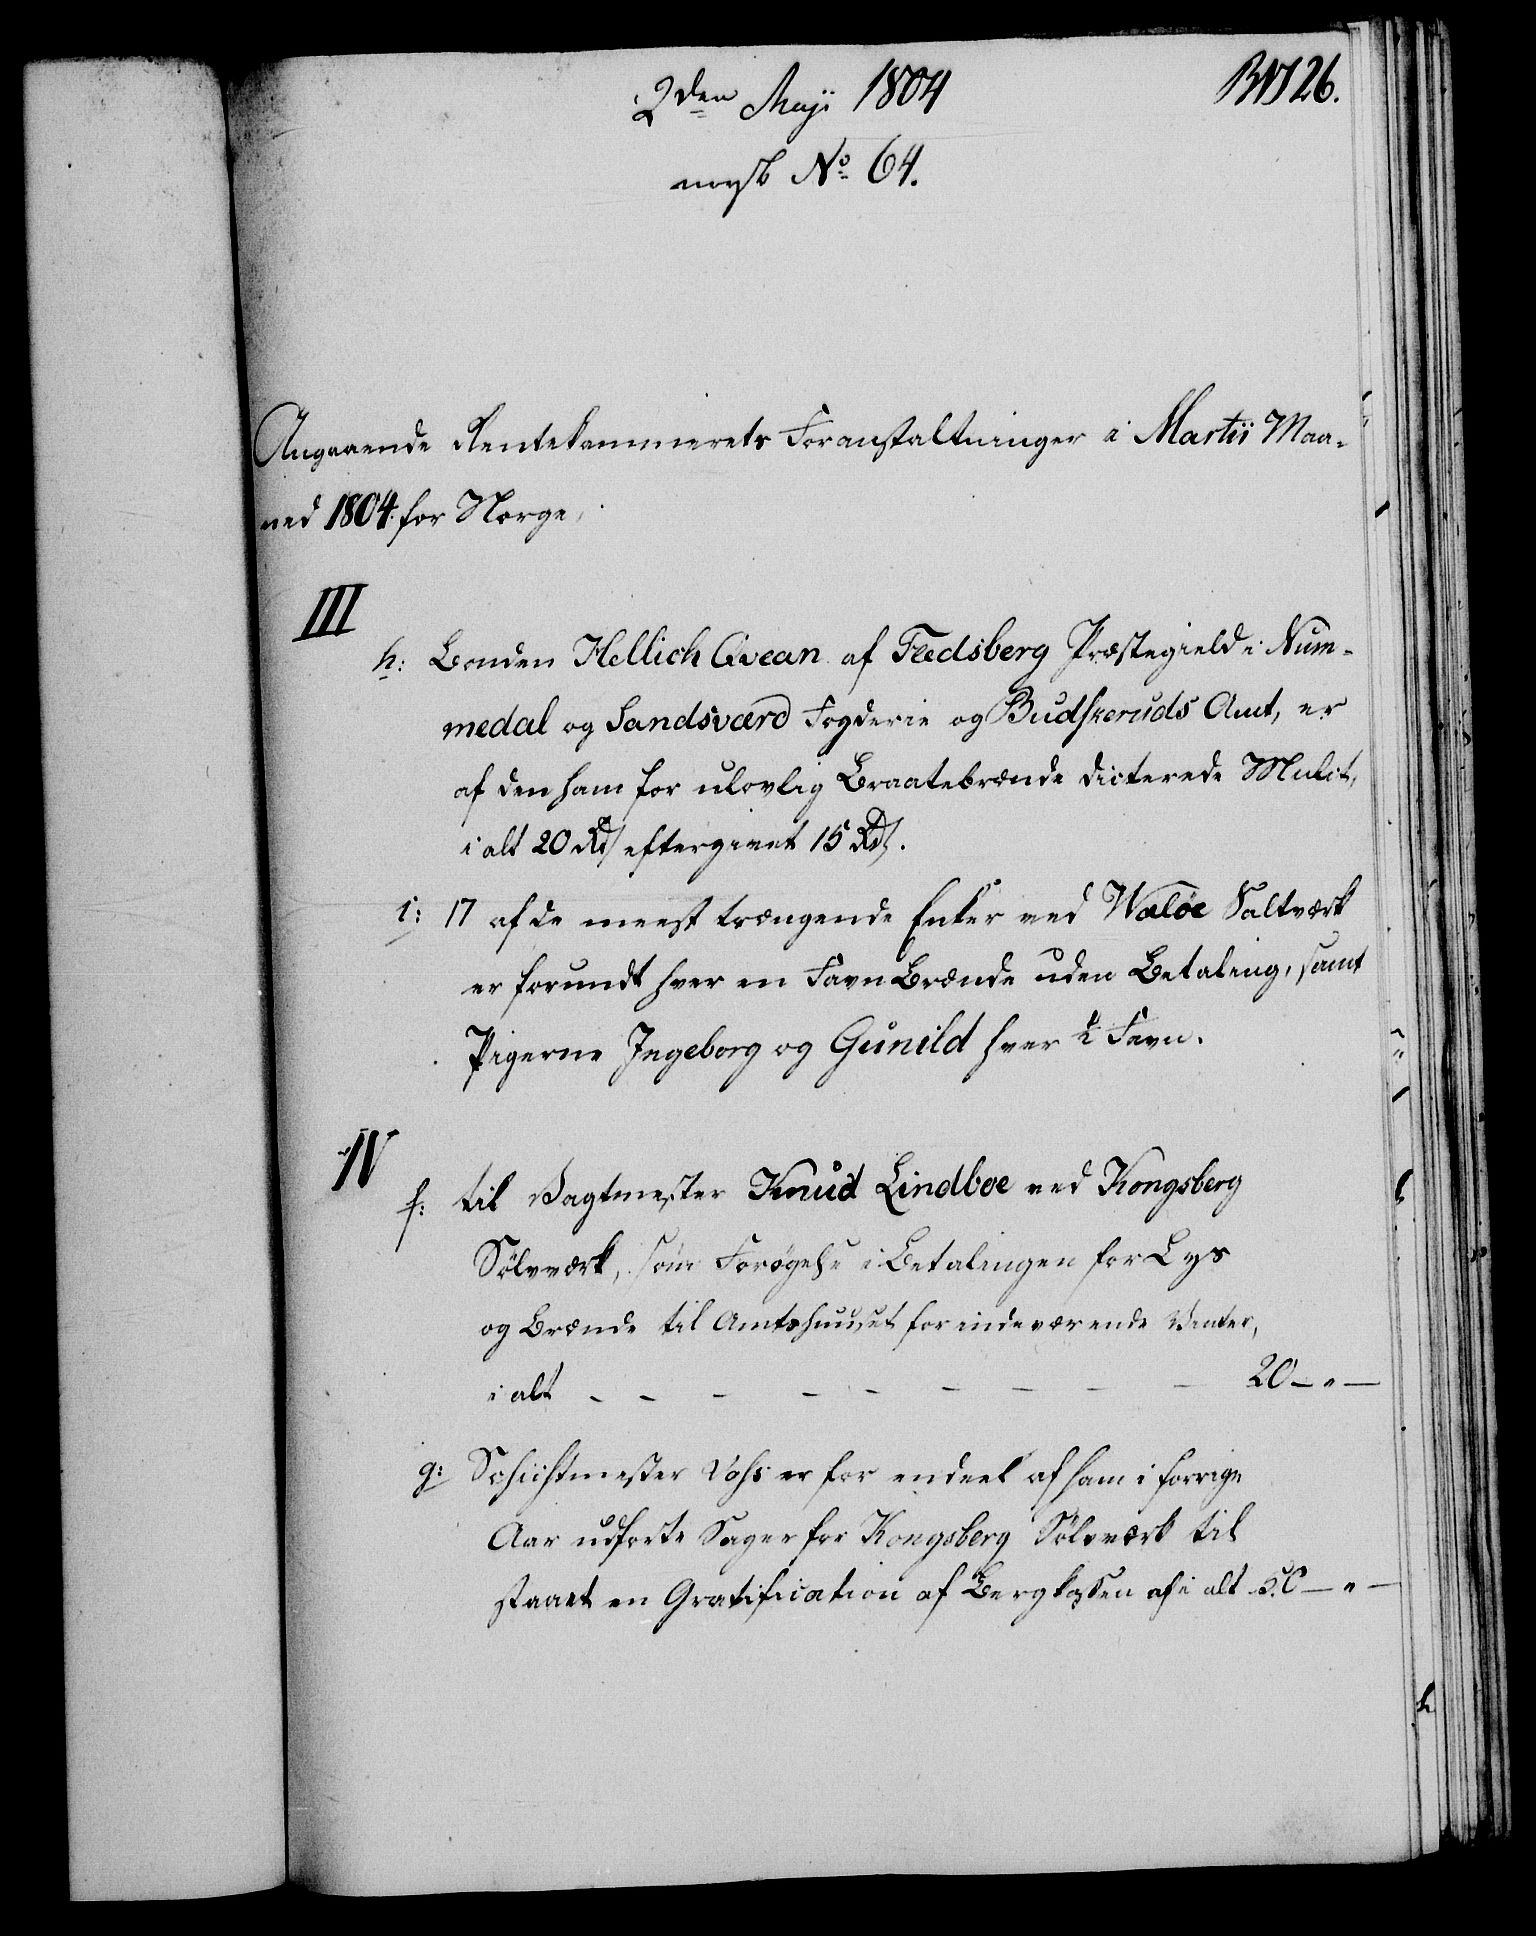 2den Maji 1804
norsk No 64.
Angaaende Rentekammerets Foranstaltninger i Martii Maa-
ned 1804. for Norge.
III
h: Bonden Hellich Qvean af Fledsberg Præstegield i Num-
medal og Sandsværd Fogderie og Budskeruds Amt, er
af den ham for ulovlig Braatebrænde dicterede Mulct,
i alt 20 Rd eftergivet 15 Rd.
i: 17 af de meest trængende Enker ved Waløe Saltværk
er forundt hver en Favn Brænde uden Betaling, samt
Pigerne Ingeborg og Gunild hver ½ Favn.
IV
f: til Vagtmester Knud Lindboe ved Kongsberg
Sølvværk, som Forøgelse i Betalingen for Lys
og Brænde til Amtshuuset for indeværende Vinter,
i alt - - - - - - - - - 20 - " -
g: Schichtmester Vohs er for endeel af ham i forrige
Aar udførte Sager for Kongsberg Sølvværk til
staaet en Gratification af Bergkassen af i alt 50 - " -